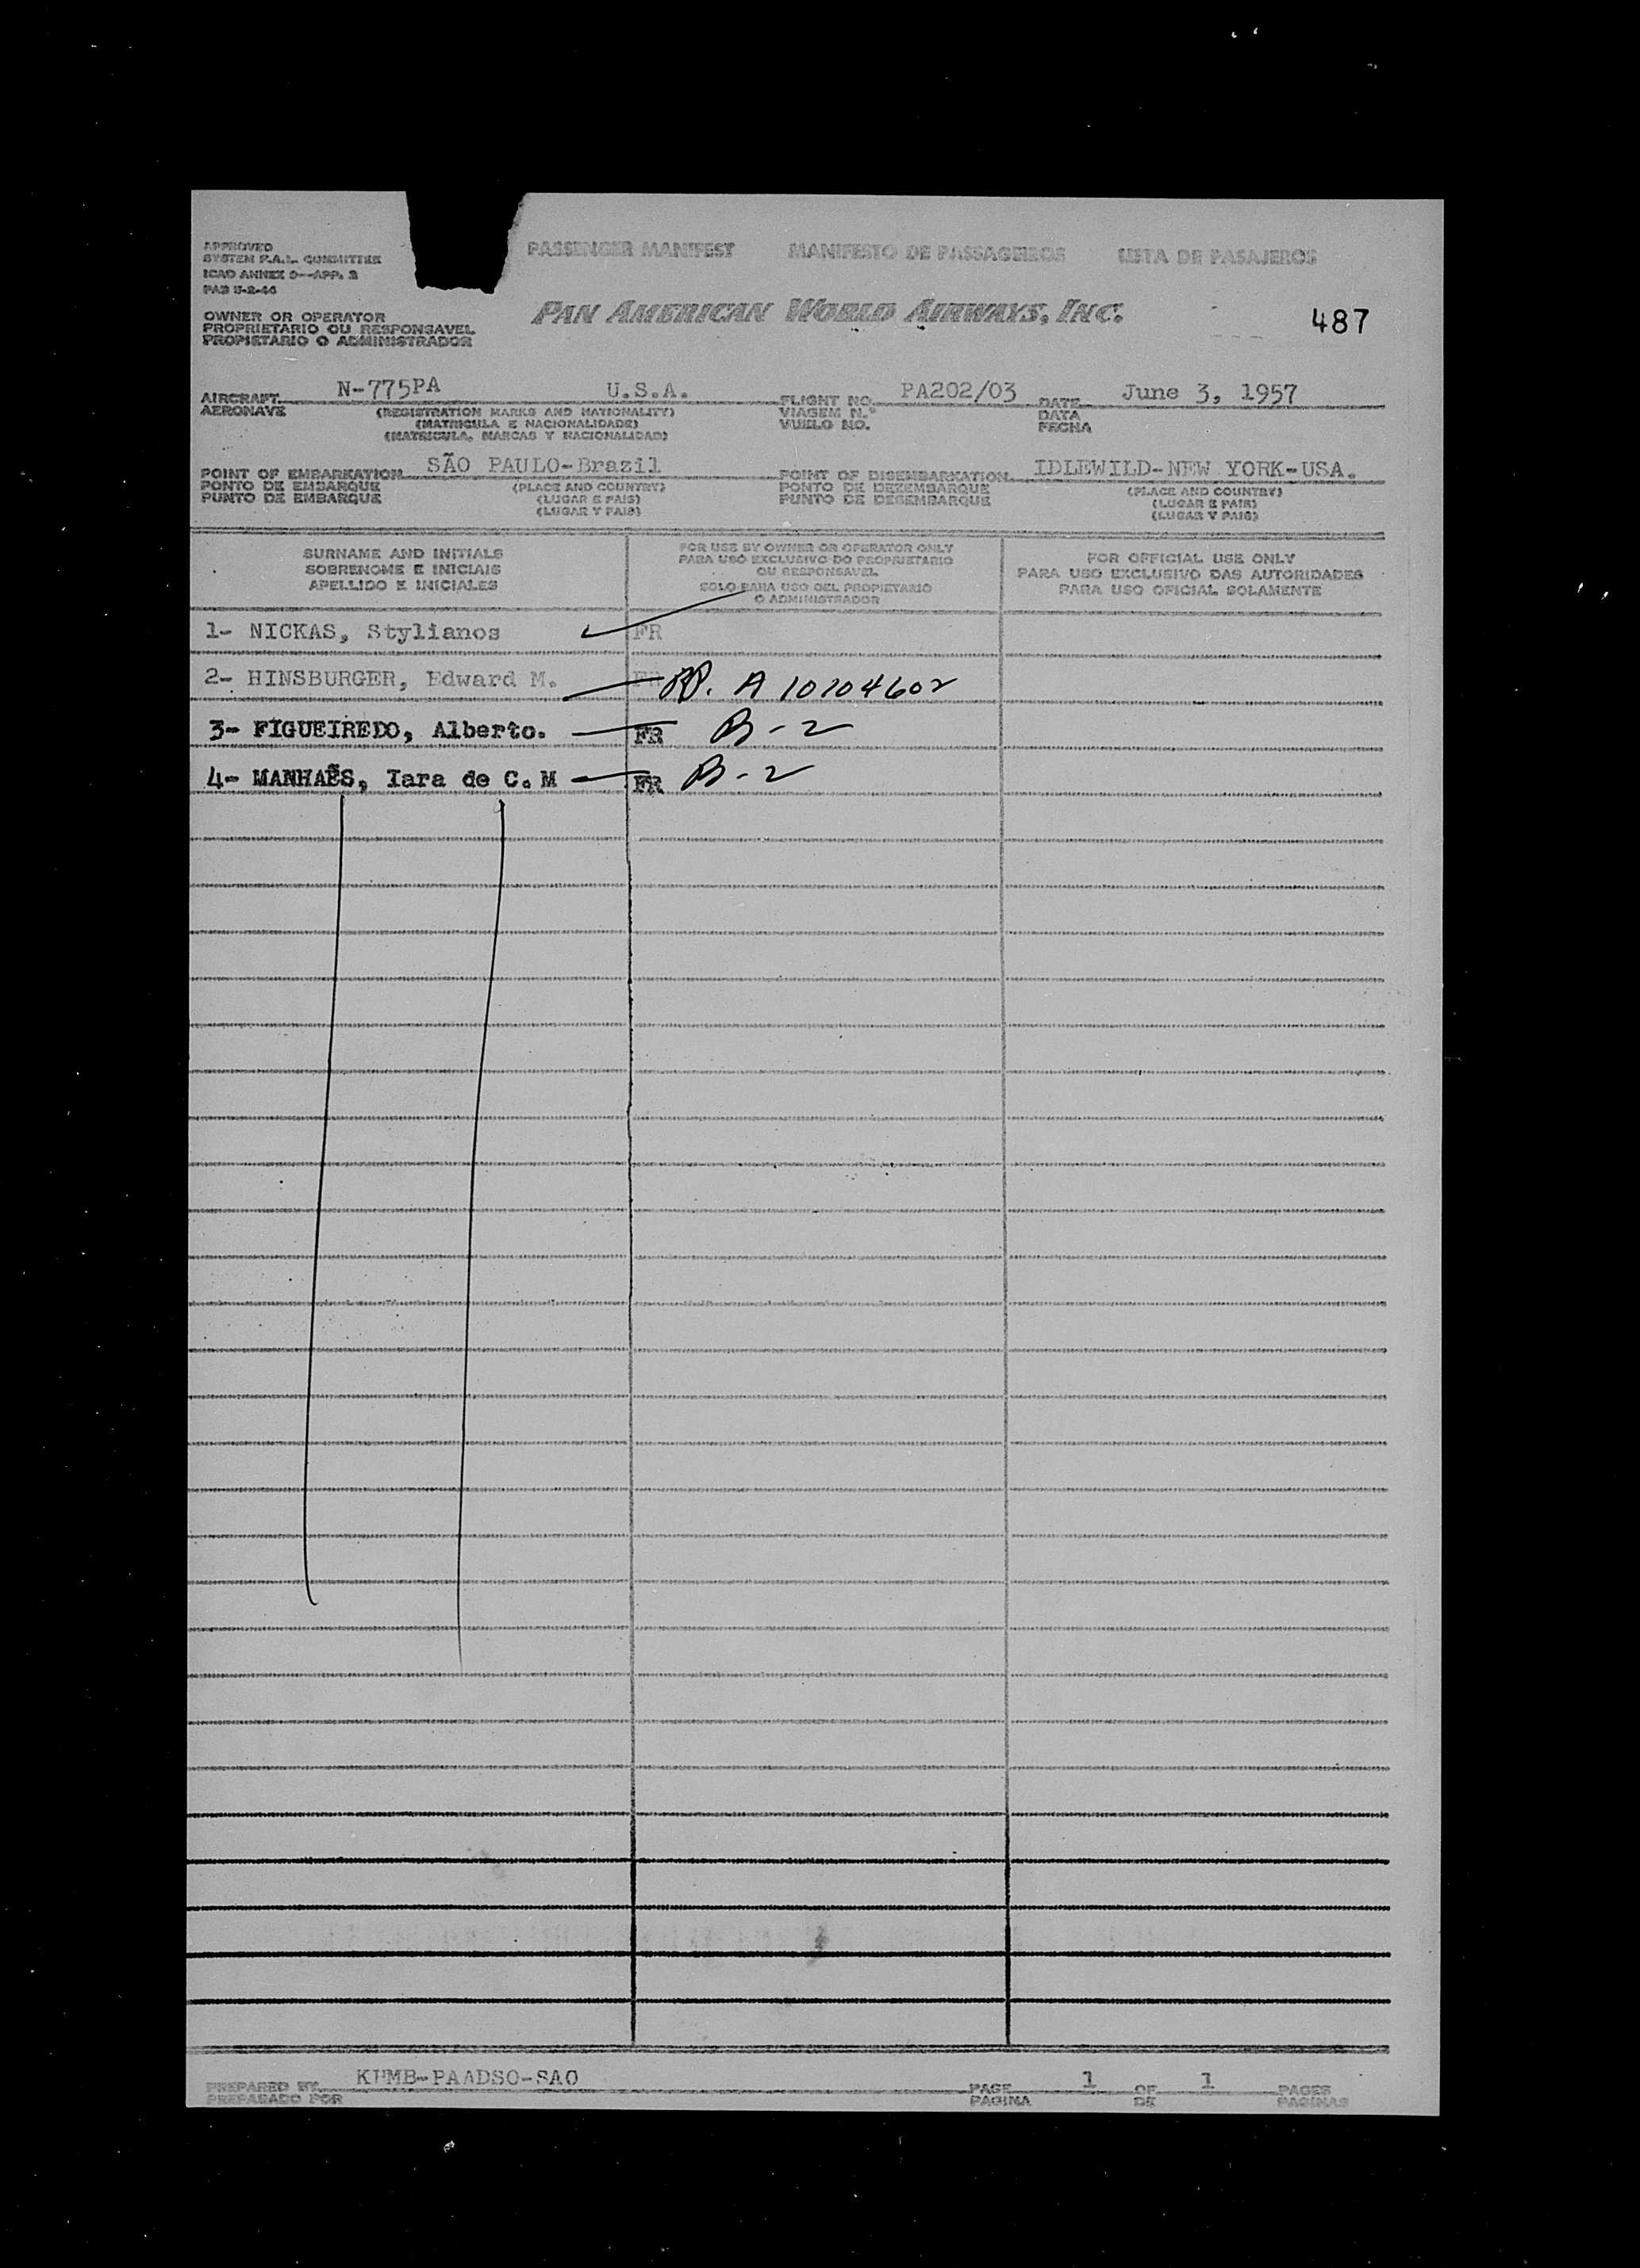 APPROVED
SYSTEM F.A.L. COMMITTEE
ICAO ANNEX 9—APP. 3
PASSENGER MANIFEST MANIFESTO DE PASSAGEIROS LISTA DE PASAJEROS
OWNER OR OPERATOR
PROPRIETARIO OU RESPONSAVEL
PROPIETARIO O ADMINISTRADOR
PAN AMERICAN WORLD AIRWAYS, INC.
487
AIRCRAFT N-775PA U.S.A. FLIGHT NO. PA202/03 DATE June 3, 1957
AERONAVE (REGISTRATION MARKS AND NATIONALITY) VIAGEM N.º DATA
(MATRICULA E NACIONALIDADE) VUELO NO. FECHA
(MATRICULA, MARCAS Y NACIONALIDAD)
POINT OF EMBARKATION SÃO PAULO-Brazil POINT OF DISEMBARKATION IDLEWILD-NEW YORK-USA.
PONTO DE EMBARQUE (PLACE AND COUNTRY) PONTO DE DEZEMBARQUE (PLACE AND COUNTRY)
PUNTO DE EMBARQUE (LUGAR E PAIS) PUNTO DE DESEMBARQUE (LUGAR E PAIS)
(LUGAR Y PAIS) (LUGAR Y PAIS)
SURNAME AND INITIALS
SOBRENOME E INICIAIS
APELLIDO E INICIALES
FOR USE BY OWNER OR OPERATOR ONLY
PARA USO EXCLUSIVO DO PROPRIETARIO
OU RESPONSAVEL
SOLO PARA USO DEL PROPIETARIO
O ADMINISTRADOR
FOR OFFICIAL USE ONLY
PARA USO EXCLUSIVO DAS AUTORIDADES
PARA USO OFICIAL SOLAMENTE
1- NICKAS, Stylianos FR
2- HINSBURGER, Edward M. FR A 10204602
3- FIGUEIREDO, Alberto. FR B-2
4- MANHAẼS, Iara de C. M FR B-2
PREPARED BY KUMB-PAADSO-SAO PAGE 1 OF 1 PAGES
PREPARADO POR PAGINA DE PAGINAS